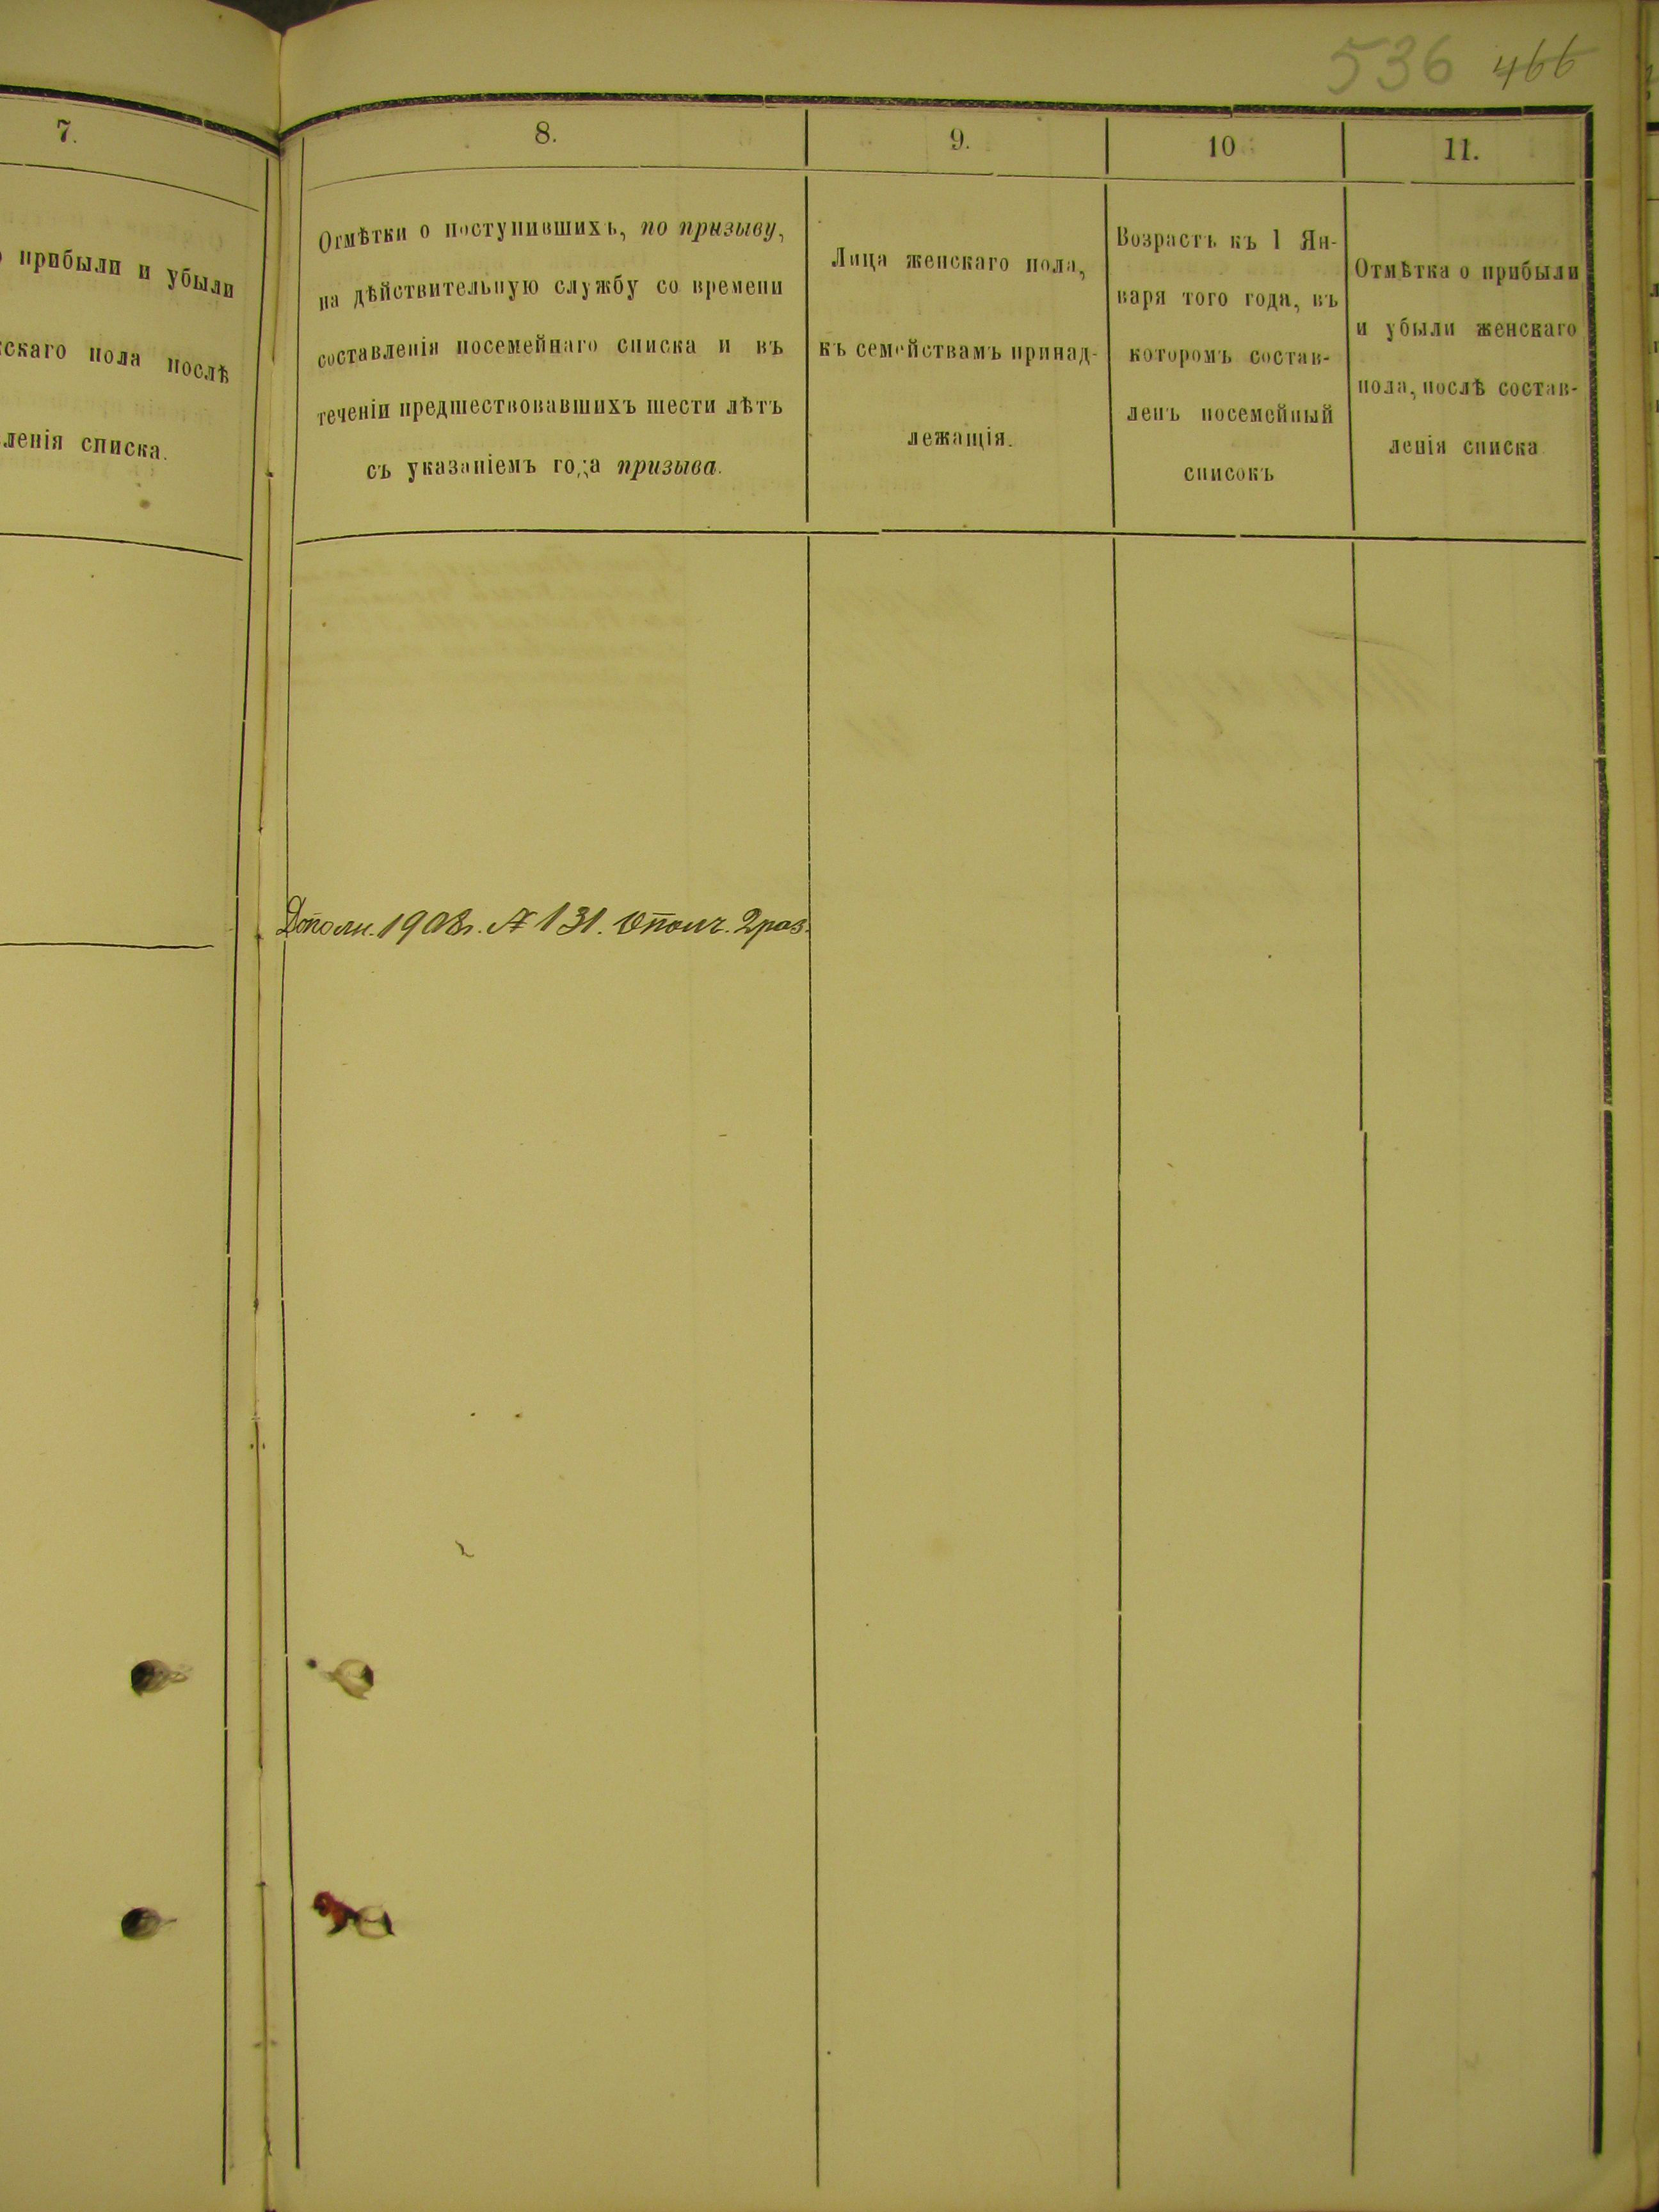 536 466
7.
прибыли и убыли
скаго пола послѣ
ленія списка.
8.
Отмѣтки о поступившихъ, по призыву,
на дѣйствительную службу со времени
составленія посемейнаго списка и въ
теченіи предшествовавшихъ шести лѣтъ
съ указаніемъ года призыва.
9.
Лица женскаго пола,
къ семействамъ принад-
лежащія.
10
Возрастъ къ 1 Ян-
варя того года, въ
которомъ состав-
ленъ посемейный
списокъ
11.
Отмѣтка о прибыли
и убыли женскаго
пола, послѣ состав-
ленія списка
Дополн. 1908г. № 131. Ополч. 2 раз.